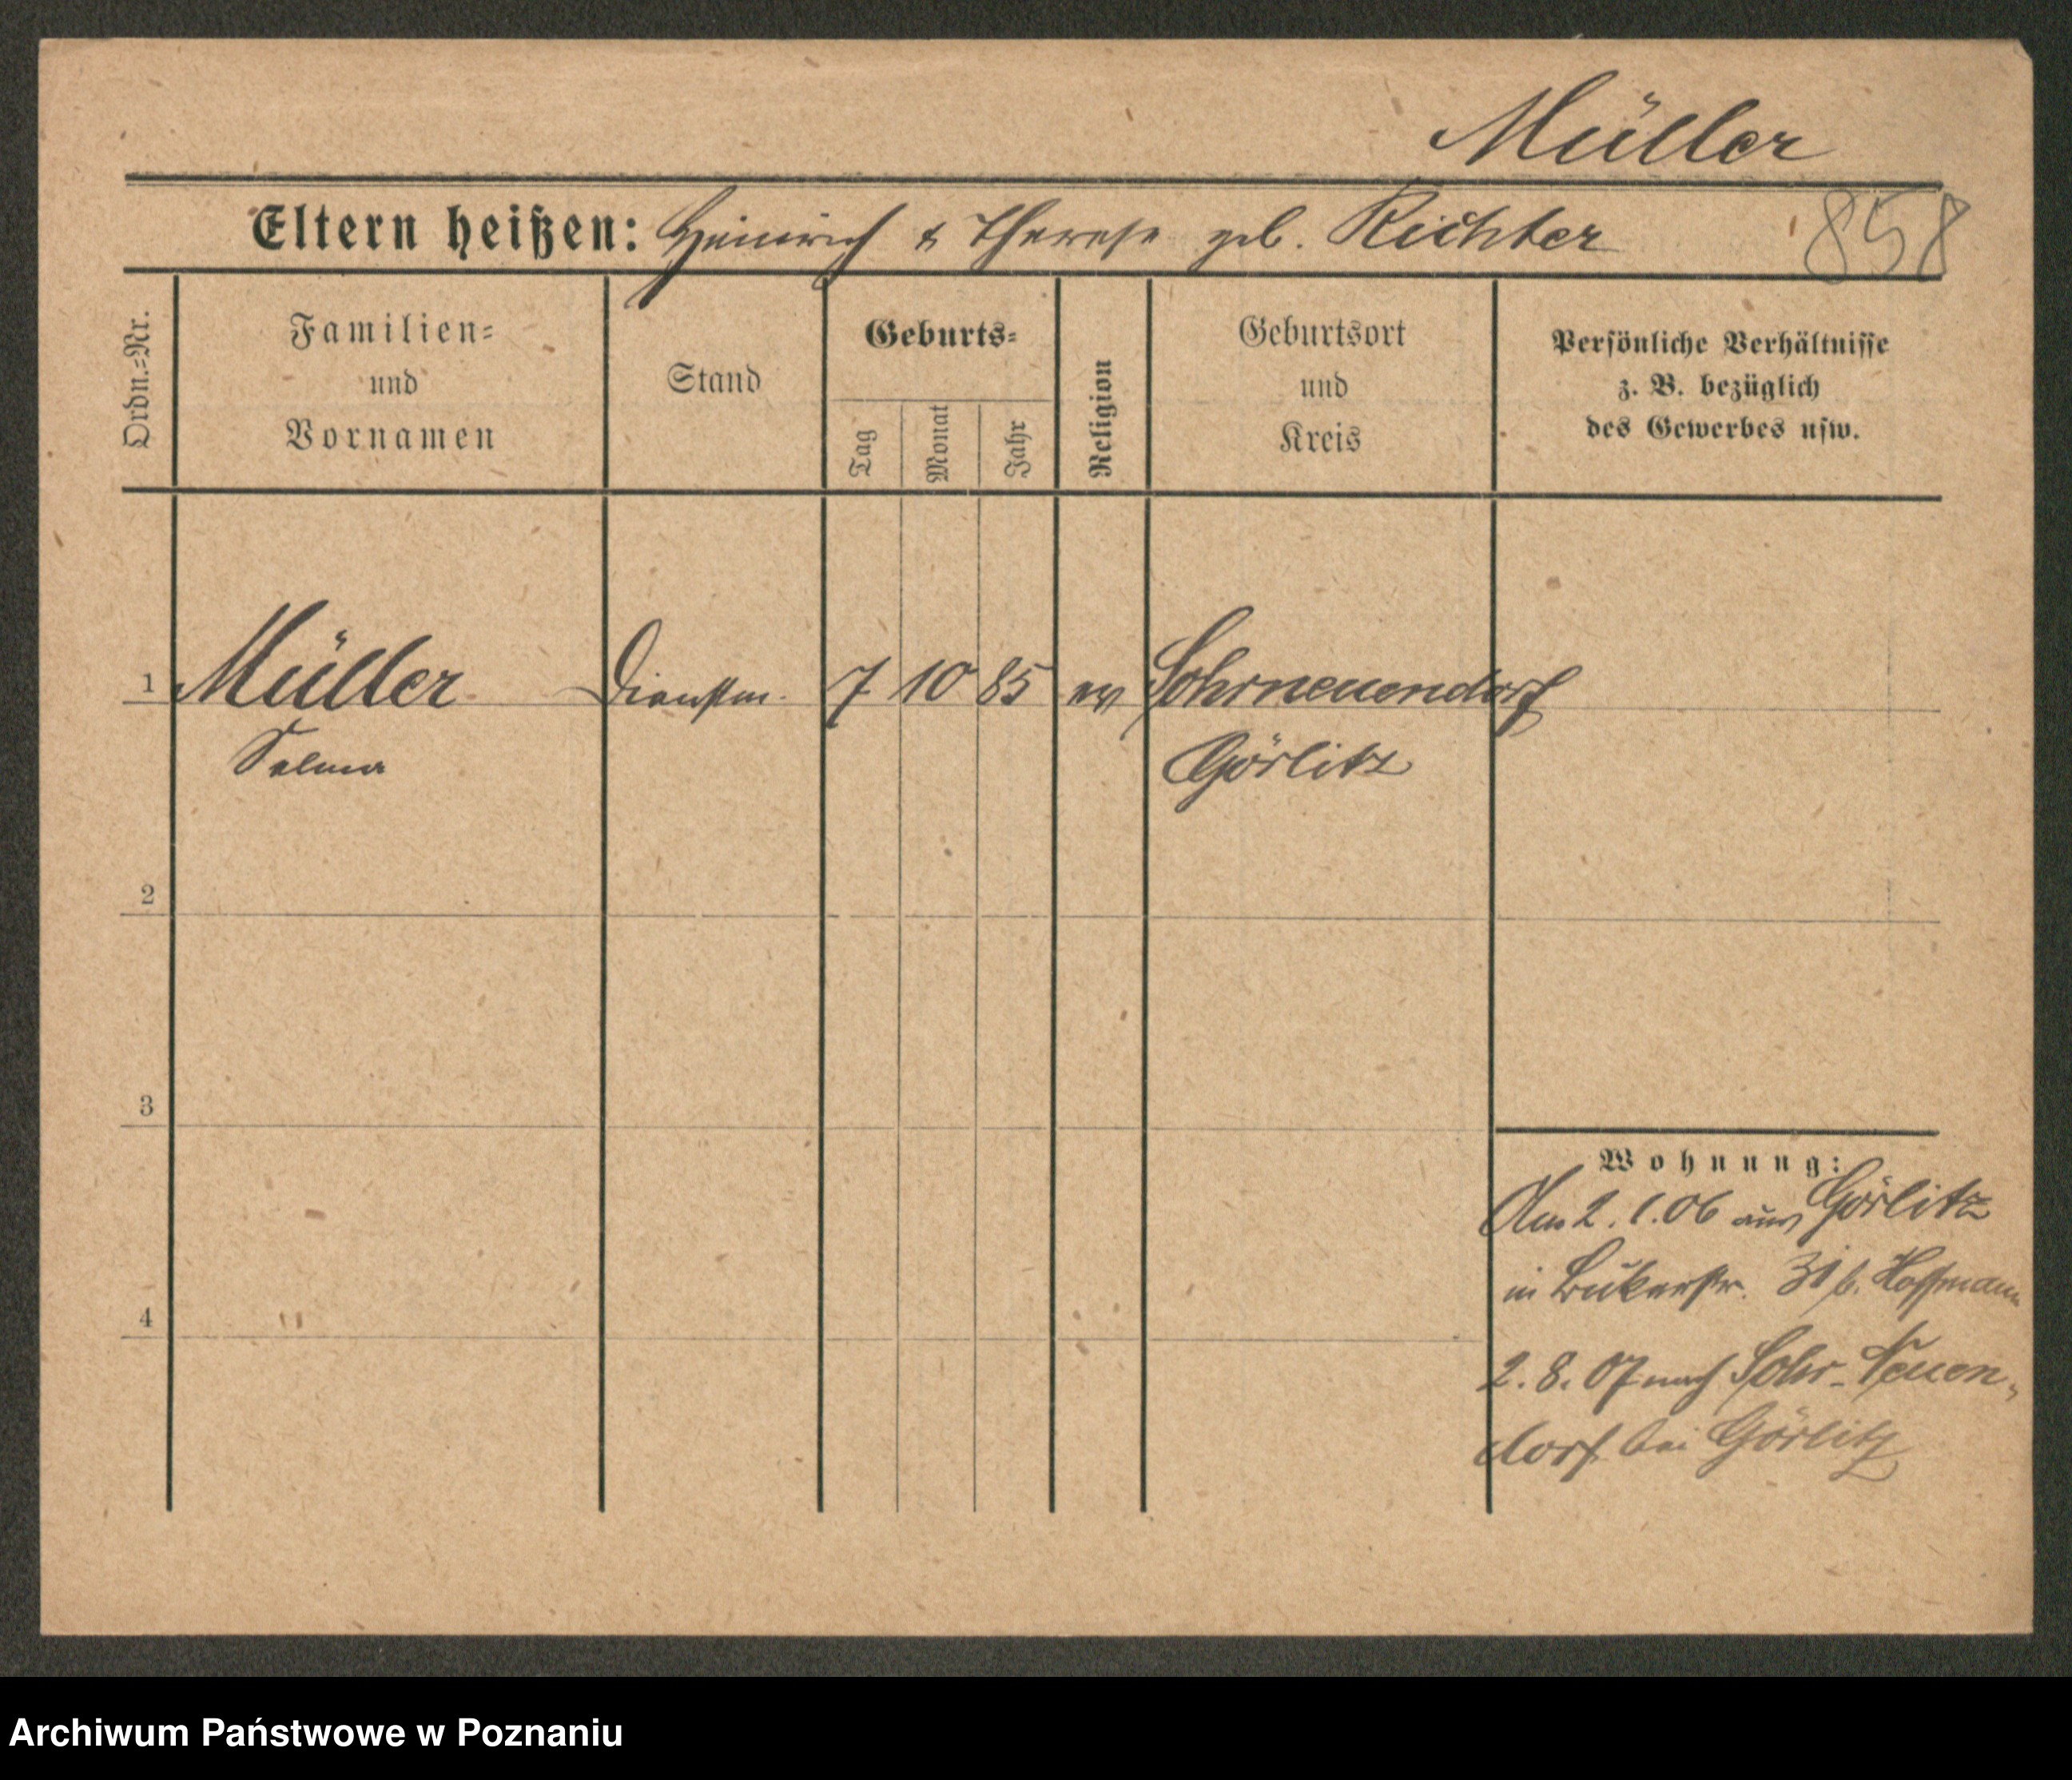 Müller
Eltern heißen: Heinrich & Therese geb. Richter 858
Ordn.=Nr.
Familien=
und
Vornamen
Stand
Geburts=
Tag
Monat
Jahr
Religion
Geburtsort
und
Kreis
Persönliche Verhältnisse
z. B. bezüglich
des Gewerbes usw.
1 Müller Dienstm. 7 10 85 ev Sohrneuendorf
Selma Görlitz
2
3
Wohnung:
Am 2.1.06 aus Görlitz
in Bukerstr. 31 b. Hoffmann
4
2.8.07 nach Sohr-Neuen-
dorf bei Görlitz
Archiwum Państwowe w Poznaniu